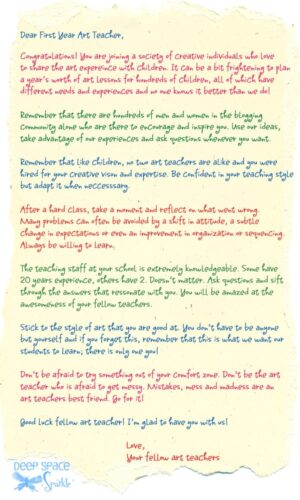 Dear First Year Art Teacher,
Congratulations! You are joining a society of creative individuals who love
to share the art expereince with children. It can be a bit frightening to plan
a year's worth of art lessons for hundreds of children, all of which have
different needs and experiences and no one knows it better than we do!
Remember that there are hundreds of men and women in the blogging
community alone who are there to encourage and inspire you. Use our ideas,
take advantage of our experiences and ask questions whenever you want.
Remember that like children, no two art teachers are alike and you were
hired for your creative vison and expertise. Be confident in your teaching style
but adapt it when neccesssary.
After a hard class, take a moment and reflect on what went wrong.
Many problems can often be avoided by a shift in attitude, a subtle
change in expectations or even an improvement in organization or sequencing.
Always be willing to learn.
The teaching staff at your school is extremely knowledgeable. Some have
20 years experience, others have 2. Doesn't matter. Ask questions and sift
through the answers that ressonate with you. You will be amazed at the
awesomeness of your fellow teachers.
Stick to the style of art that you are good at. You don't have to be anyone
but yourself and if you forget this, remember that this is what we want our
students to learn; there is only one you!
Don't be afraid to try something out of your comfort zone. Don't be the art
teacher who is afraid to get messy. Mistakes, mess and madness are an
art teachers best friend. Go for it!
Good luck fellow art teacher! I'm glad to have you with us!
Love,
Your fellow art teachers
DEEP SPACE
Sparkle